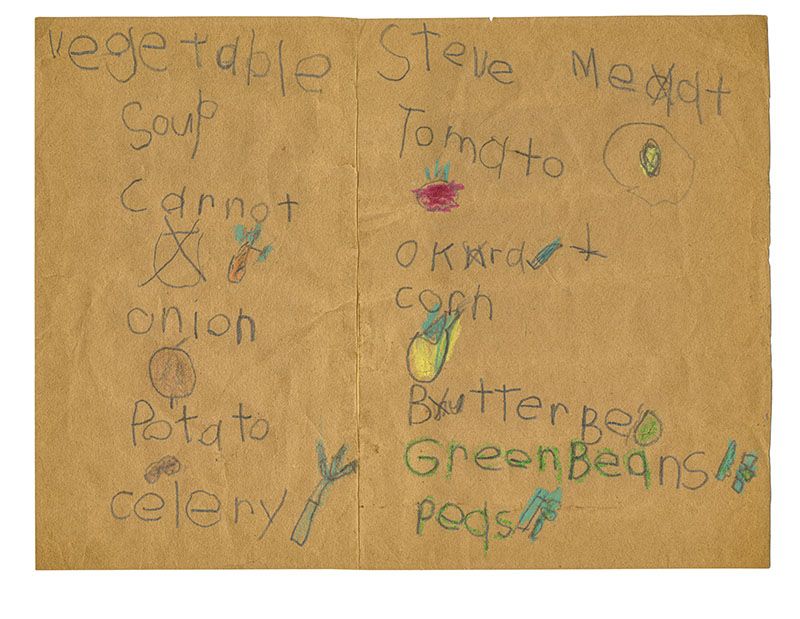 Vegetable
Soup
Carrot
onion
Potato
celery
Steve Meat
Tomato
okra
corn
Butter Be
GreenBeans
peas